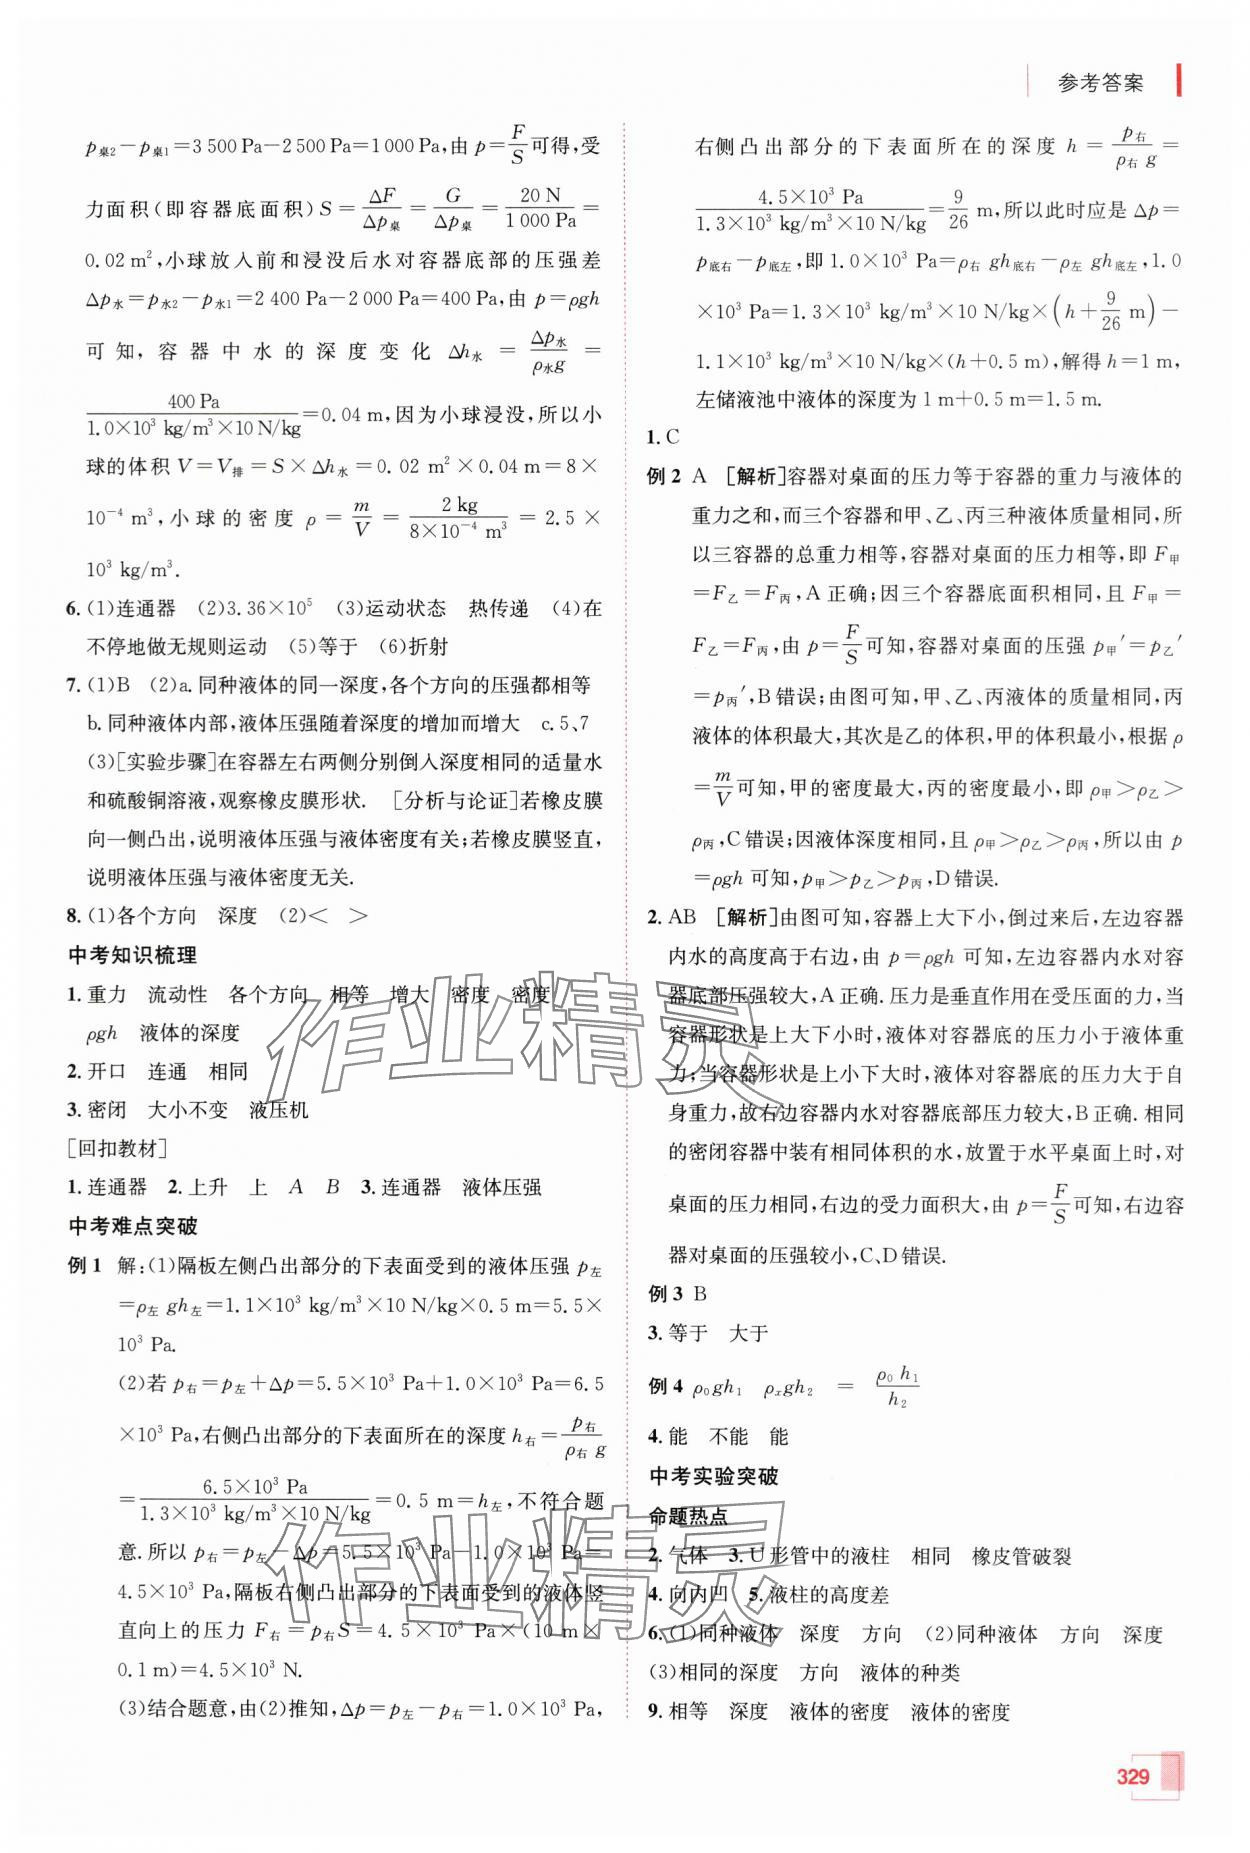 参考答案
p桌2－p桌1＝3 500 Pa－2 500 Pa＝1 000 Pa,由 p＝F/S可得,受
力面积(即容器底面积)S＝ΔF/Δp桌＝G/Δp桌＝20 N/1 000 Pa＝
0.02 m²,小球放入前和浸没后水对容器底部的压强差
Δp水＝p水2－p水1＝2 400 Pa－2 000 Pa＝400 Pa,由 p＝ρgh
可知,容器中水的深度变化 Δh水＝Δp水/ρ水g＝
400 Pa/1.0×10³ kg/m³×10 N/kg＝0.04 m,因为小球浸没,所以小
球的体积 V＝V排＝S×Δh水＝0.02 m²×0.04 m＝8×
10⁻⁴ m³,小球的密度 ρ＝m/V＝2 kg/8×10⁻⁴ m³＝2.5×
10³ kg/m³.
6.(1)连通器 (2)3.36×10⁵ (3)运动状态 热传递 (4)在
不停地做无规则运动 (5)等于 (6)折射
7.(1)B (2)a.同种液体的同一深度,各个方向的压强都相等
b.同种液体内部,液体压强随着深度的增加而增大 c.5、7
(3)[实验步骤]在容器左右两侧分别倒入深度相同的适量水
和硫酸铜溶液,观察橡皮膜形状. [分析与论证]若橡皮膜
向一侧凸出,说明液体压强与液体密度有关;若橡皮膜竖直,
说明液体压强与液体密度无关.
8.(1)各个方向 深度 (2)＜ ＞
中考知识梳理
1.重力 流动性 各个方向 相等 增大 密度 密度
ρgh 液体的深度
2.开口 连通 相同
3.密闭 大小不变 液压机
[回扣教材]
1.连通器 2.上升 上 A B 3.连通器 液体压强
中考难点突破
例1 解:(1)隔板左侧凸出部分的下表面受到的液体压强 p左
＝ρ左 gh左＝1.1×10³ kg/m³×10 N/kg×0.5 m＝5.5×
10³ Pa.
(2)若 p右＝p左＋Δp＝5.5×10³ Pa＋1.0×10³ Pa＝6.5
×10³ Pa,右侧凸出部分的下表面所在的深度 h右＝p右/ρ右 g
＝6.5×10³ Pa/1.3×10³ kg/m³×10 N/kg＝0.5 m＝h左,不符合题
意.所以 p右＝p左－Δp＝5.5×10³ Pa－1.0×10³ Pa＝
4.5×10³ Pa,隔板右侧凸出部分的下表面受到的液体竖
直向上的压力 F右＝p右S＝4.5×10³ Pa×(10 m×
0.1 m)＝4.5×10³ N.
(3)结合题意,由(2)推知,Δp＝p左－p右＝1.0×10³ Pa,
右侧凸出部分的下表面所在的深度 h＝p右/ρ右 g＝
4.5×10³ Pa/1.3×10³ kg/m³×10 N/kg＝9/26 m,所以此时应是 Δp＝
p底右－p底左,即 1.0×10³ Pa＝ρ右 gh底右－ρ左 gh底左,1.0
×10³ Pa＝1.3×10³ kg/m³×10 N/kg×(h＋9/26 m)－
1.1×10³ kg/m³×10 N/kg×(h＋0.5 m),解得 h＝1 m,
左储液池中液体的深度为 1 m＋0.5 m＝1.5 m.
1.C
例2 A [解析]容器对桌面的压力等于容器的重力与液体的
重力之和,而三个容器和甲、乙、丙三种液体质量相同,所
以三容器的总重力相等,容器对桌面的压力相等,即 F甲
＝F乙＝F丙,A 正确;因三个容器底面积相同,且 F甲＝
F乙＝F丙,由 p＝F/S可知,容器对桌面的压强 p甲′＝p乙′
＝p丙′,B 错误;由图可知,甲、乙、丙液体的质量相同,丙
液体的体积最大,其次是乙的体积,甲的体积最小,根据 ρ
＝m/V可知,甲的密度最大,丙的密度最小,即 ρ甲＞ρ乙＞
ρ丙,C 错误;因液体深度相同,且 ρ甲＞ρ乙＞ρ丙,所以由 p
＝ρgh 可知,p甲＞p乙＞p丙,D 错误.
2.AB [解析]由图可知,容器上大下小,倒过来后,左边容器
内水的高度高于右边,由 p＝ρgh 可知,左边容器内水对容
器底部压强较大,A 正确.压力是垂直作用在受压面的力,当
容器形状是上大下小时,液体对容器底的压力小于液体重
力;当容器形状是上小下大时,液体对容器底的压力大于自
身重力,故右边容器内水对容器底部压力较大,B 正确.相同
的密闭容器中装有相同体积的水,放置于水平桌面上时,对
桌面的压力相同,右边的受力面积大,由 p＝F/S可知,右边容
器对桌面的压强较小,C、D 错误.
例3 B
3.等于 大于
例4 ρ₀gh₁ ρₓgh₂ ＝ ρ₀ h₁/h₂
4.能 不能 能
中考实验突破
命题热点
2.气体 3.U 形管中的液柱 相同 橡皮管破裂
4.向内凹 5.液柱的高度差
6.(1)同种液体 深度 方向 (2)同种液体 方向 深度
(3)相同的深度 方向 液体的种类
9.相等 深度 液体的密度 液体的密度
作业精灵
作业精灵
329